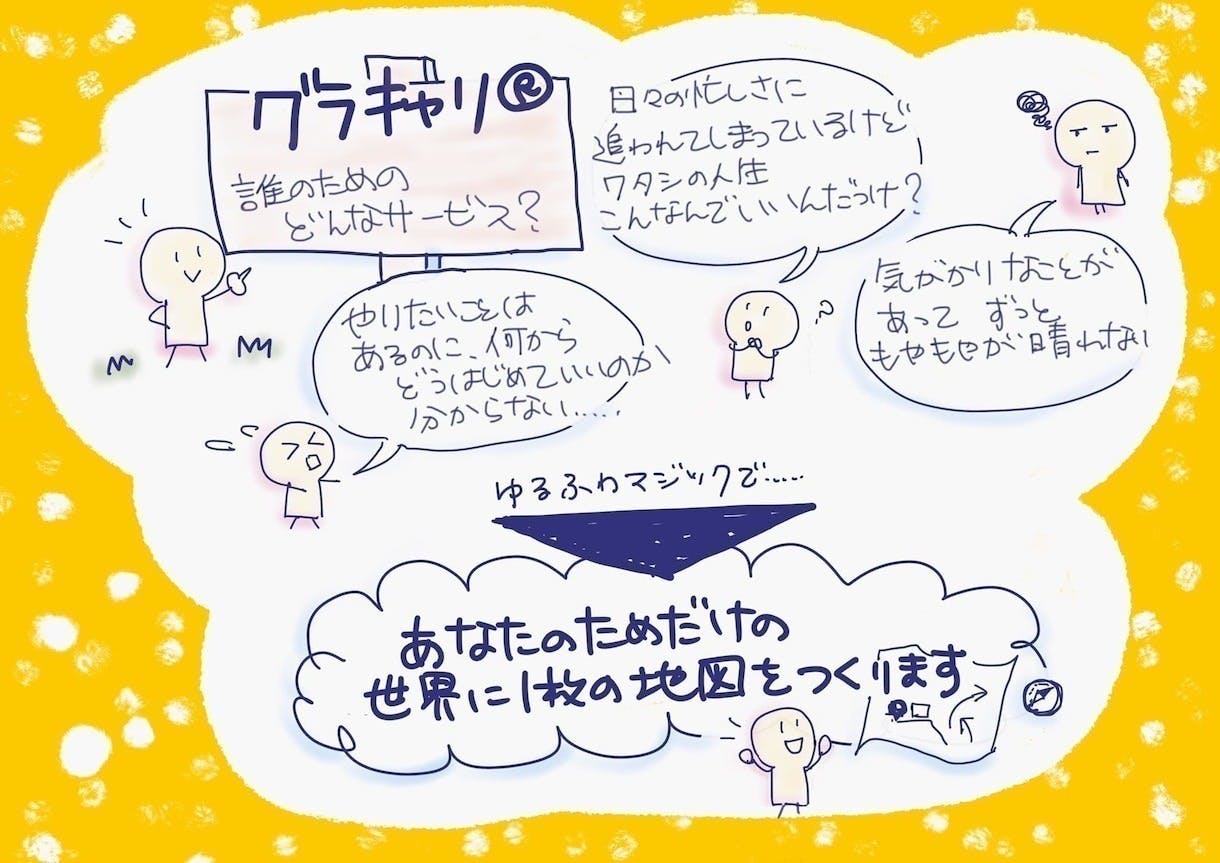 グラキャリ®
誰のための
どんなサービス?
日々の忙しさに
追われてしまっているけど
ワタシの人生
こんなんでいいんだっけ?
気がかりなことが
あって ずっと
もやもやが晴れない
やりたいことは
あるのに、何から
どうはじめていいのか
分からない.....
ゆるふわマジックで.....
あなたのためだけの
世界に1枚の地図をつくります